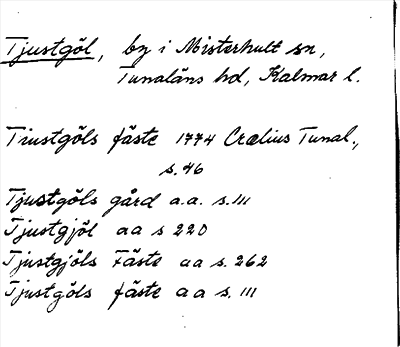 Tjustgöl, by i Misterhult sn,
Tunaläns hd, Kalmar l.
Tiustgöls fäste 1774 Crælius Tunal.,
s. 46
Tjustgöls gård a.a. s. 111
Tjustgjöl aa s 220
Tjustgjöls Fäste aa s. 262
Tjustgöls fäste a a s. 111